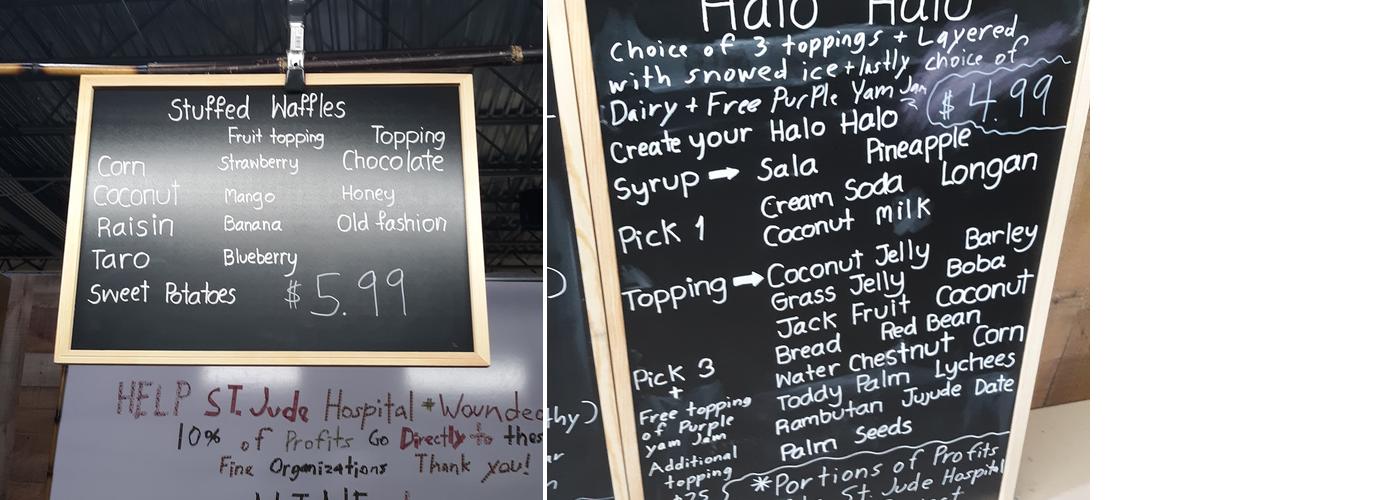 Stuffed Waffles
Fruit topping Topping
Corn Strawberry Chocolate
Coconut Mango Honey
Raisin Banana Old fashion
Taro Blueberry
Sweet Potatoes $5.99
HELP ST. Jude Hospital + Wounded
10% of Profits Go Directly to thes
Fine Organizations Thank you!
Halo Halo
Choice of 3 toppings + Layered
with snowed ice + lastly choice of
Dairy + Free Purple Yam Jam
$4.99
Create your Halo Halo
Syrup → Sala Pineapple
Cream Soda Longan
Pick 1 Coconut milk
Topping → Coconut Jelly Barley
Grass Jelly Boba
Jack Fruit Coconut
Bread Red Bean
Pick 3 Water Chestnut Corn
+ Toddy Palm Lychees
Free topping Rambutan Jujude Date
of Purple Palm Seeds
yam Jam
Additional
topping
$.75
*Portions of Profits
St. Jude Hospital
thy)